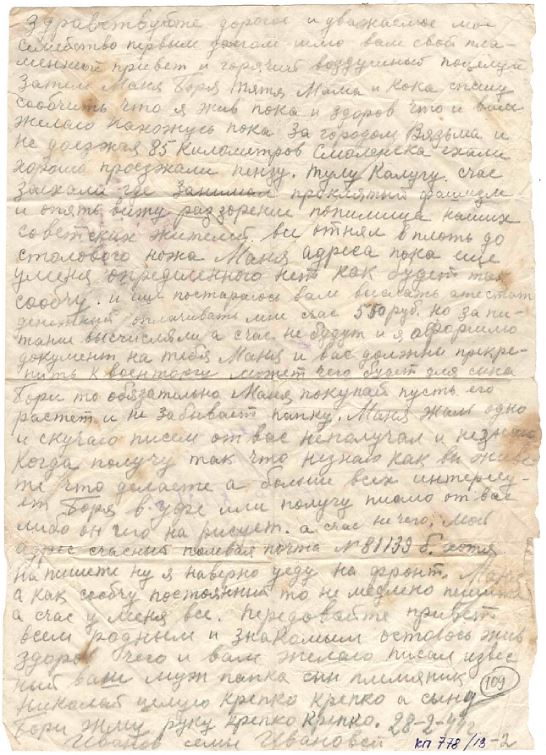 Здравствуйте дорогое и уважаемое мое
семейство первым долгом шлю вам свой пла-
менный привет и горячий воздушный поцелуй
Затем Маня Боря тятя Мама и Кока спешу
сообчить что я жив пока и здоров что и вам
желаю нахожусь пока за городом Вязьма и
не доезжая 85 километров Смоленска ехали
хорошо проезжали пензу. тулу Калугу. счас
заехали где занимал проклятый фашизм
и опять вижу раззорение попилища наших
советских жителей. все отнял вплоть до
столового ножа Маня адреса пока еще
уменя определенного нет как будет так
сообчу. и еще постараюсь вам выслать атестат
денежный оплачивать мне счас 550 руб. но за пи-
тание вычисляли а счас не будут и я оформлю
документ на тебя Маня и вас должны прикре-
пить к военторгу может чего будет для сына
Бори то обязательно Маня покупай пусть его
растет и не забывает папку. Маня жаль одно
и скучаю писем от вас неполучал и незнаю
когда получу так что незнаю как вы живе-
те что делаете а больше всех интересу-
ет Боря в уфе или получу писмо от вас
либо он чего на рисует. а счас нечего. мой
адрес счасный полевая почта № 81139 б. хотя
напишете ну я наверно уеду на фронт. Маня
а как сообчу постоянный то не медлено пишите
а счас у меня все. передовайте привет
всем родным и знакомым остаюсь жив
здоров чего и вам желаю писал извес
ный ваш муж папка сын племяник
Николай целую крепко крепко а сыну
Бори жму руку крепко крепко. 28-2-43
Иванов семьи Ивановой
109
КП 778/13-2